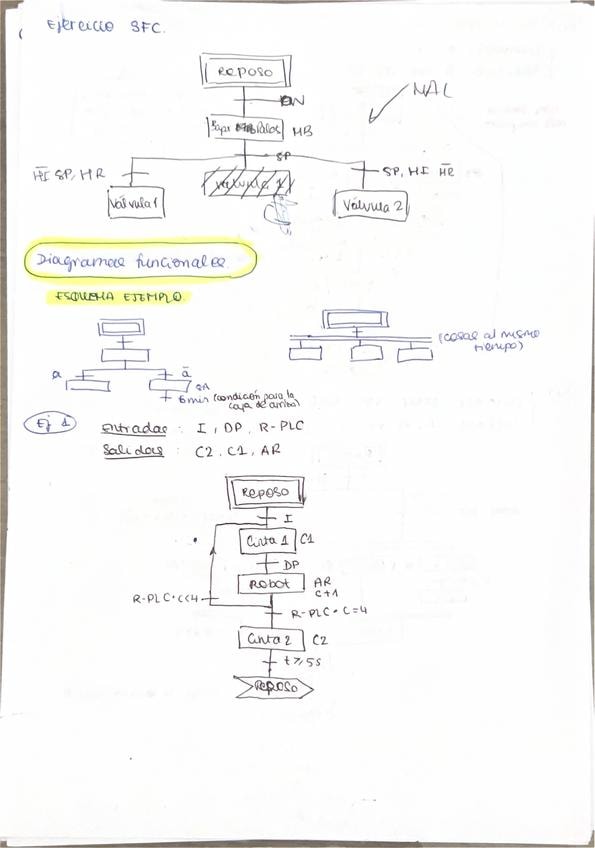 Ejercicio SFC.
REPOSO
ON
MAL
MB
SP
H̅I̅ SP, HR
SP, HI H̅R̅
Válvula 1
Válvula 1
Válvula 2
Diagramas funcionales.
ESQUEMA EJEMPLO.
(cosas al mismo
tiempo)
a
a̅
6 min (condición para la
caja de arriba)
Ej 1
Entradas : I, DP, R-PLC
Salidas : C2, C1, AR
REPOSO
I
Cinta 1 C1
DP
Robot AR
C+1
R-PLC·C<4
R-PLC·C=4
Cinta 2 C2
t≥5s
REPOSO